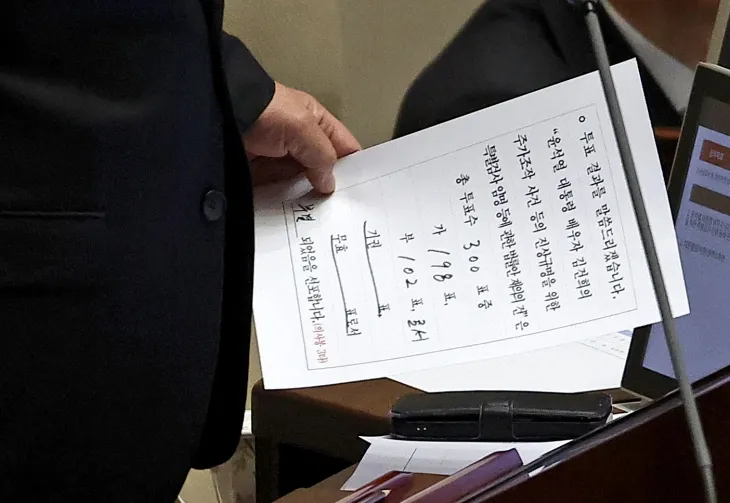 ○ 투표 결과를 말씀드리겠습니다.
"윤석열 대통령 배우자 김건희의
주가조작 사건 등의 진상규명을 위한
특별검사 임명 등에 관한 법률안 재의의 건"은
총 투표수 300 표 중
가 198 표,
부 102 표, 로서
기권 표,
무효 표로서
부결 되었음을 선포합니다.(의사봉 3타)